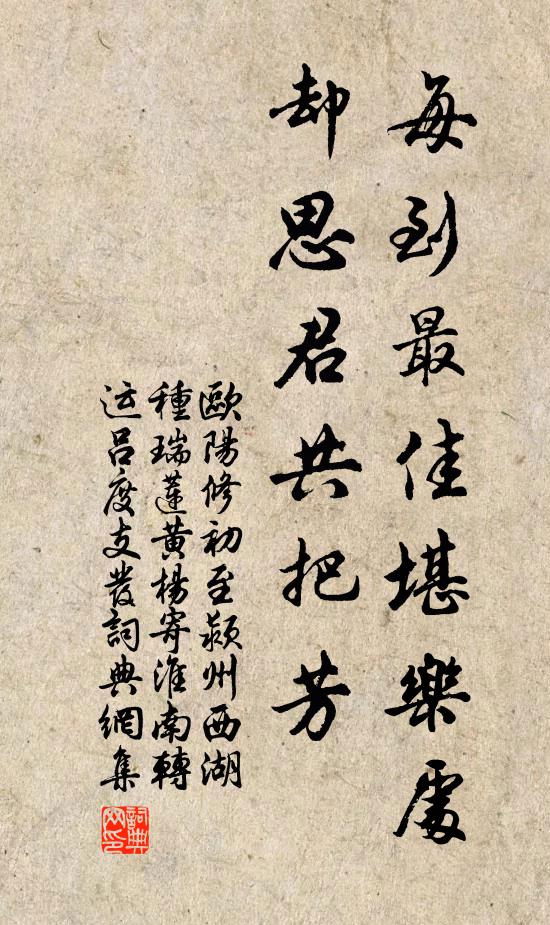 每到最佳堪樂處
却思君共把芳
歐陽修初至潁州西湖
種瑞蓮黃楊寄淮南轉
运呂度支發詞典網集
詞典网印